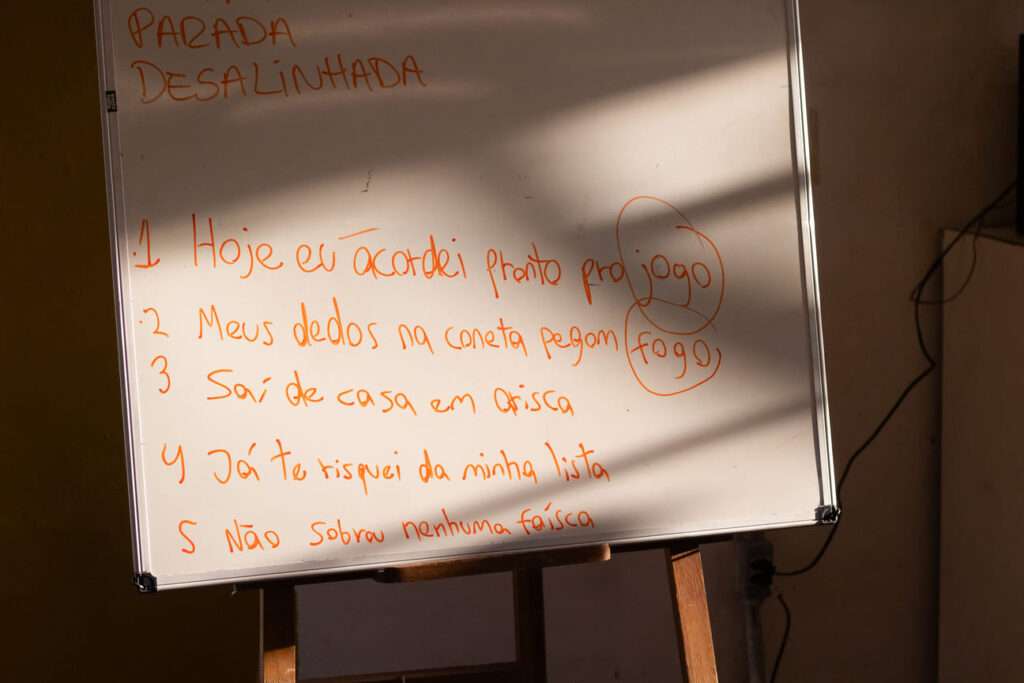 PARADA
DESALINHADA
.1 Hoje eu acordei pronto pro jogo
.2 Meus dedos na caneta pegam fogo,
3 Saí de casa em arisca
4 Já te risquei da minha lista
5 Não sobrou nenhuma faísca